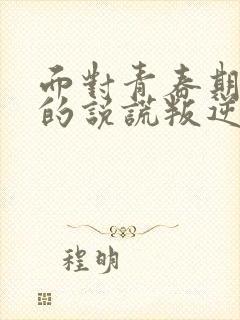 而對青春期
的說謊叛逆
程明